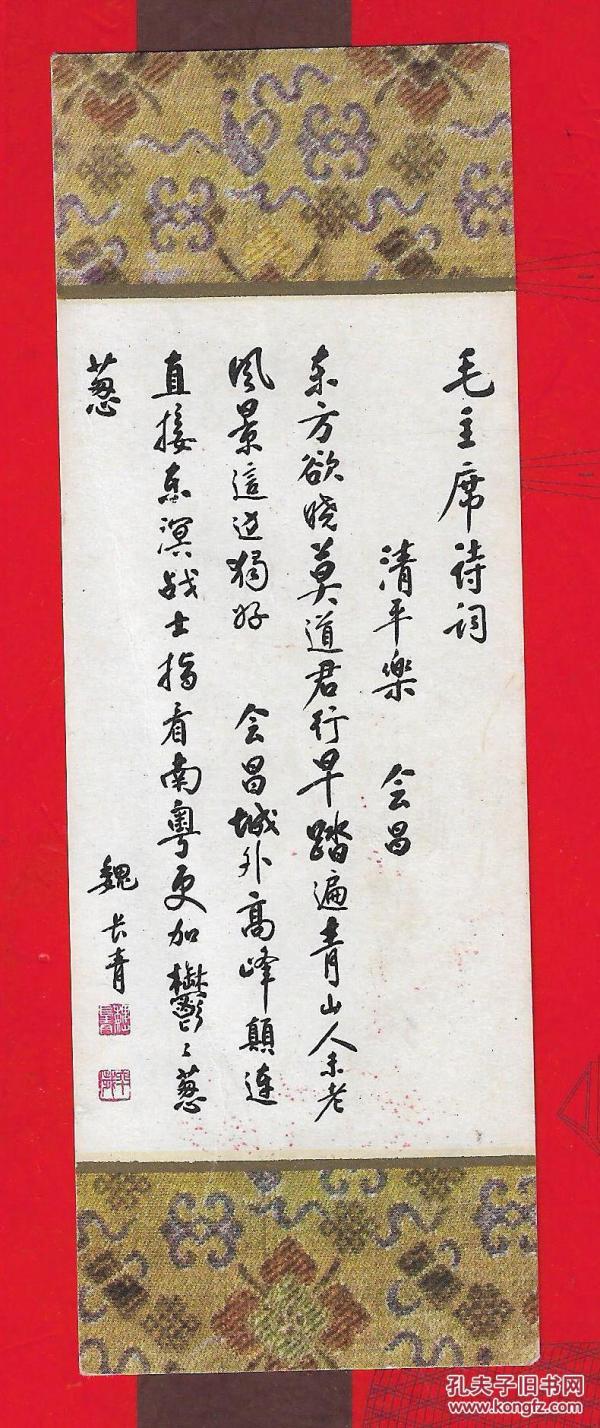 毛主席诗词
清平樂 会昌
东方欲晓莫道君行早踏遍青山人未老
风景這边獨好 会昌城外高峰顛连
直接东溟战士指看南粤更加欝〻葱
葱
魏长青
孔夫子旧书网
www.kongfz.com